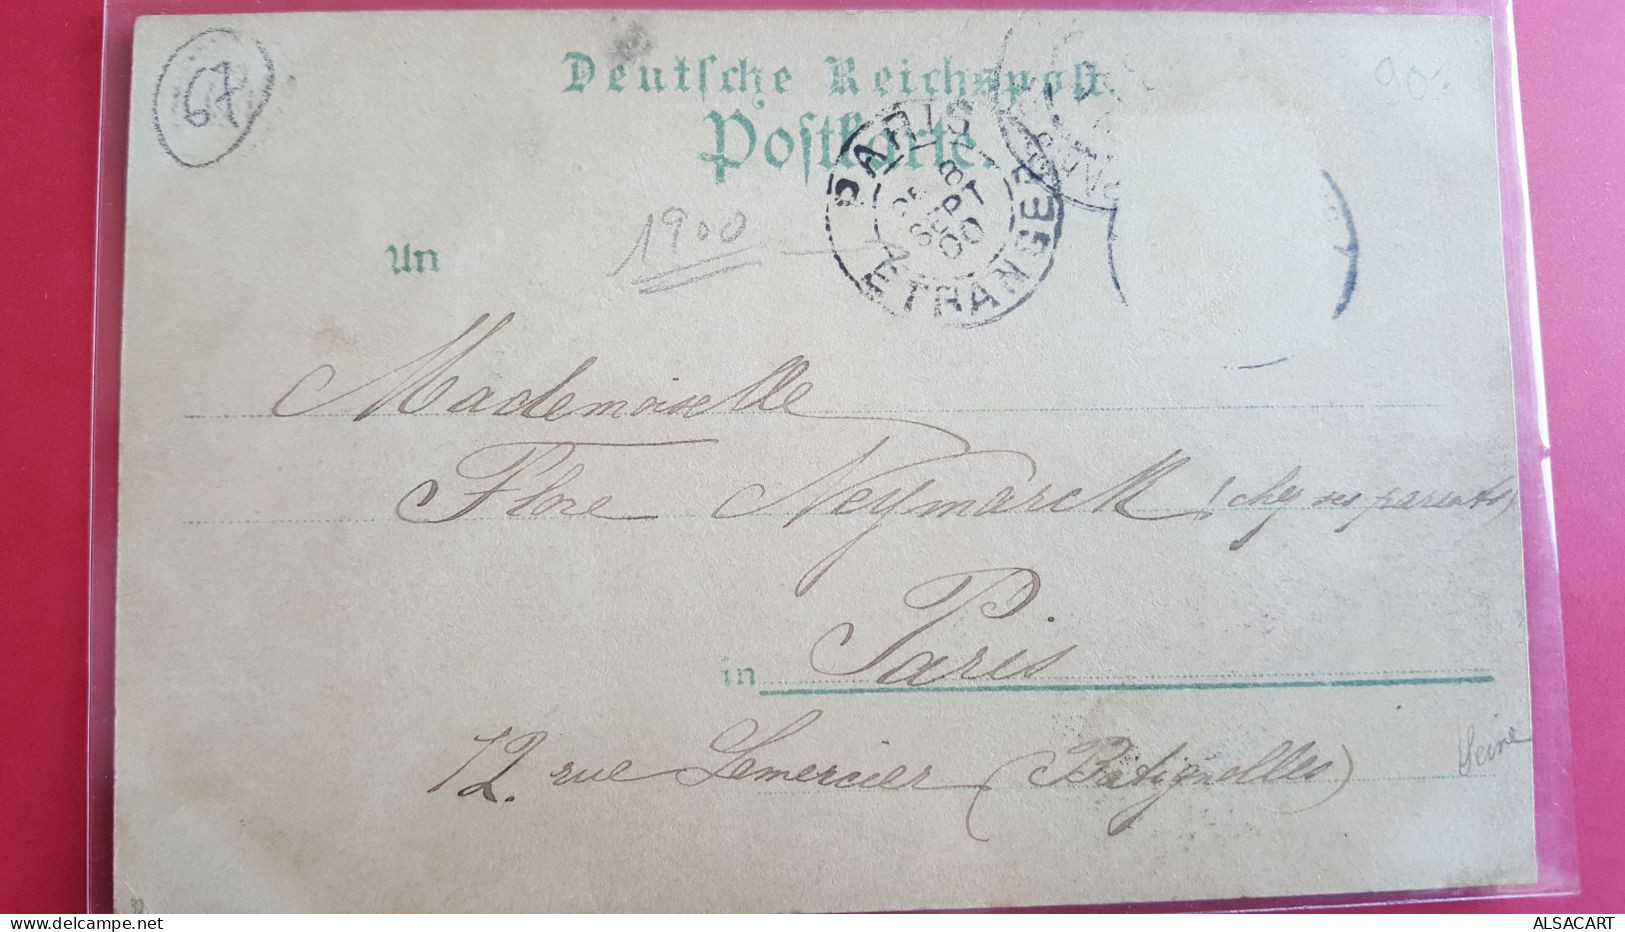 67
Deutsche Reichspost.
Postkarte.
90
PARIS
8
SEPT
00
ETRANGER
1900
An
Mademoiselle
Flore Neymarck (chez ses parents)
in Paris
12. rue Lemercier (Batignolles)
Seine
ALSACART